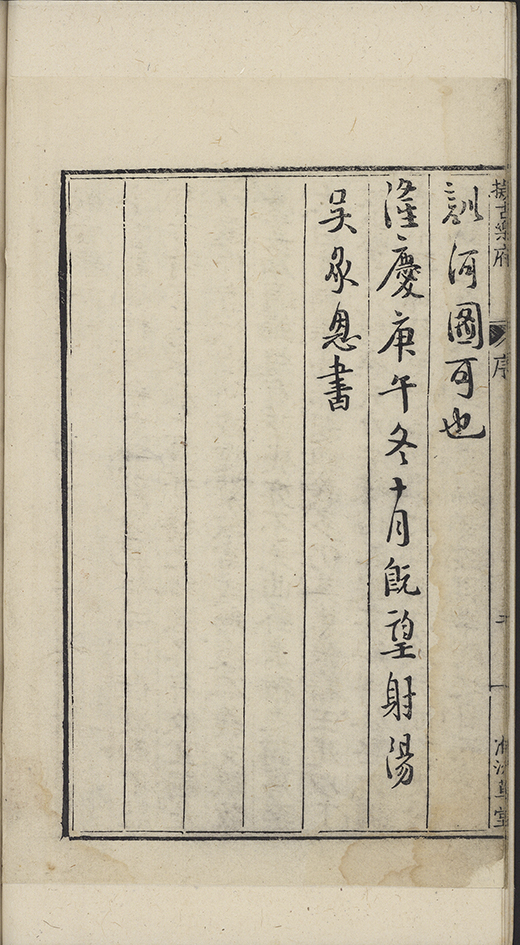 擬古樂府
序
訓河圖可也
隆慶庚午冬十月旣望射陽
吴承恩書
草堂